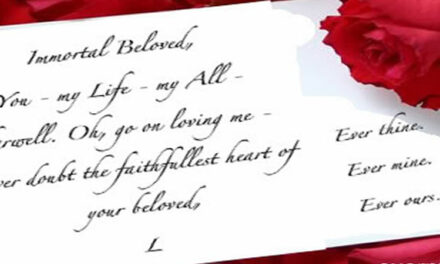 Immortal Beloved,
You – my Life – my All –
erwell. Oh, go on loving me –
ver doubt the faithfullest heart of
your beloved,
L
Ever thine.
Ever mine.
Ever ours.